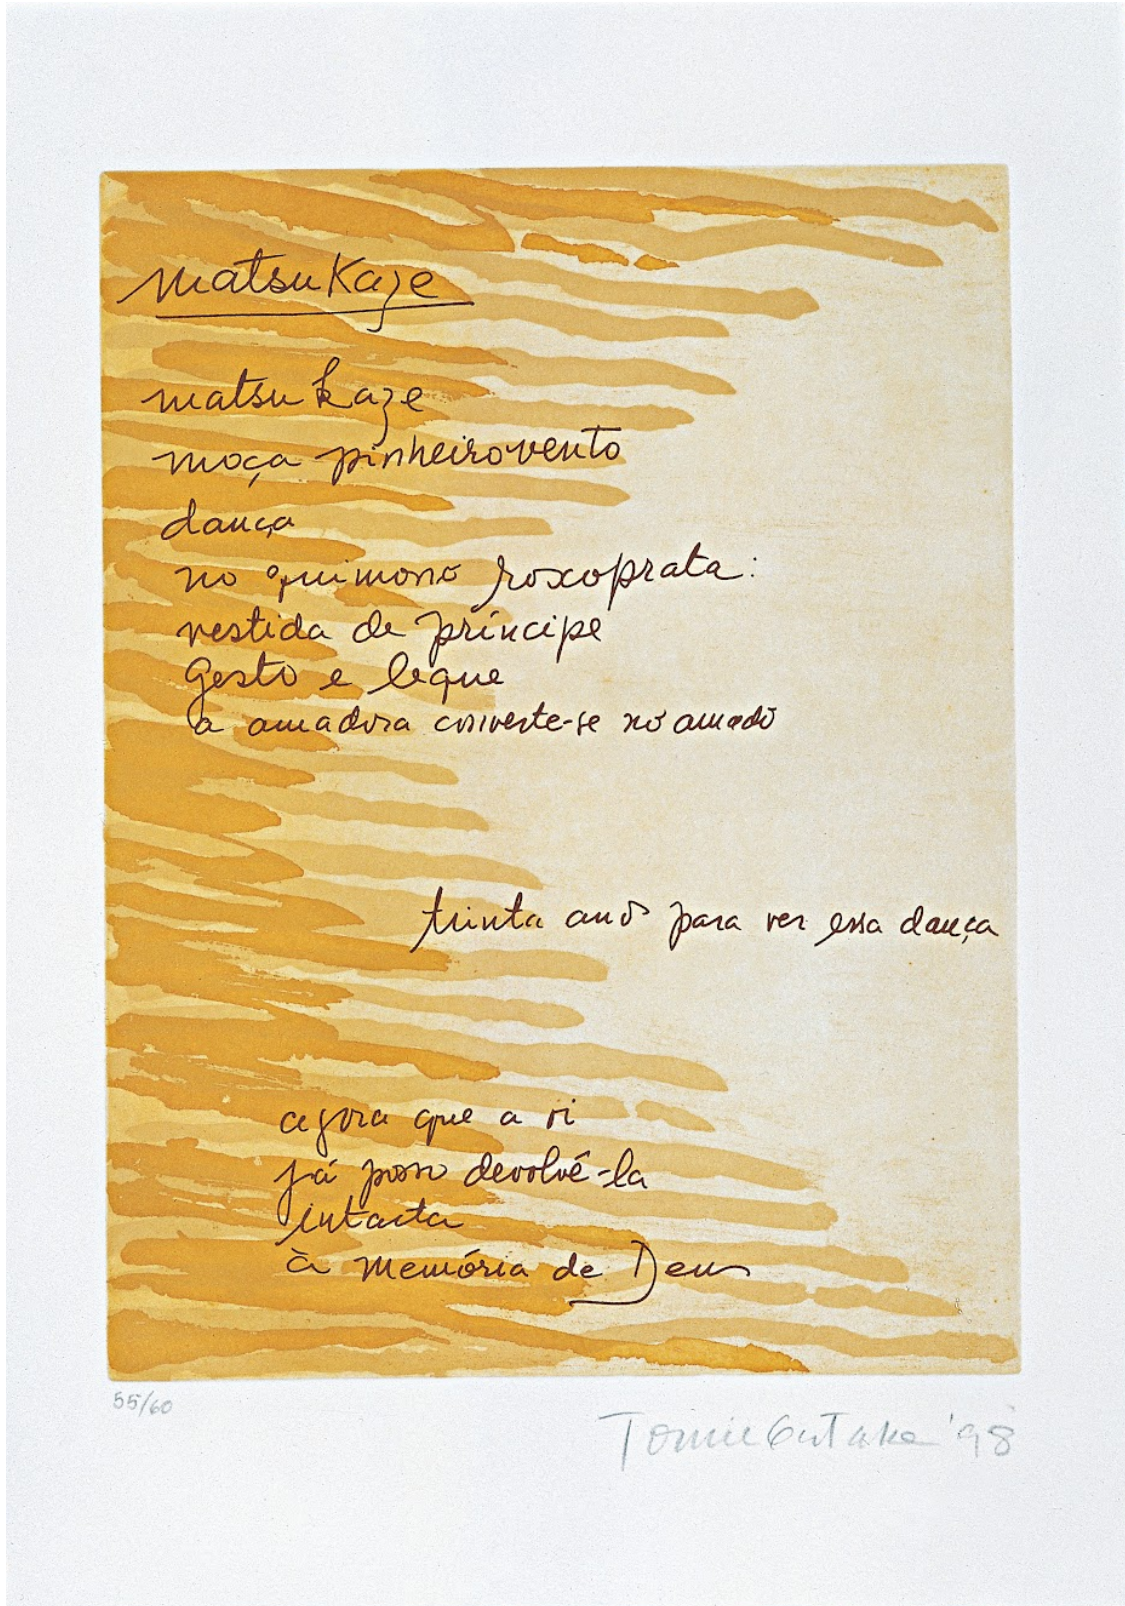 matsukaze
matsukaze
moça pinheirovento
dança
no quimono roxoprata:
vestida de príncipe
gesto e leque
a amadora converte-se no amado
trinta anos para ver essa dança
agora que a vi
já posso devolvê-la
intacta
à memória de Deus
55/60
Tomie Ohtake '98